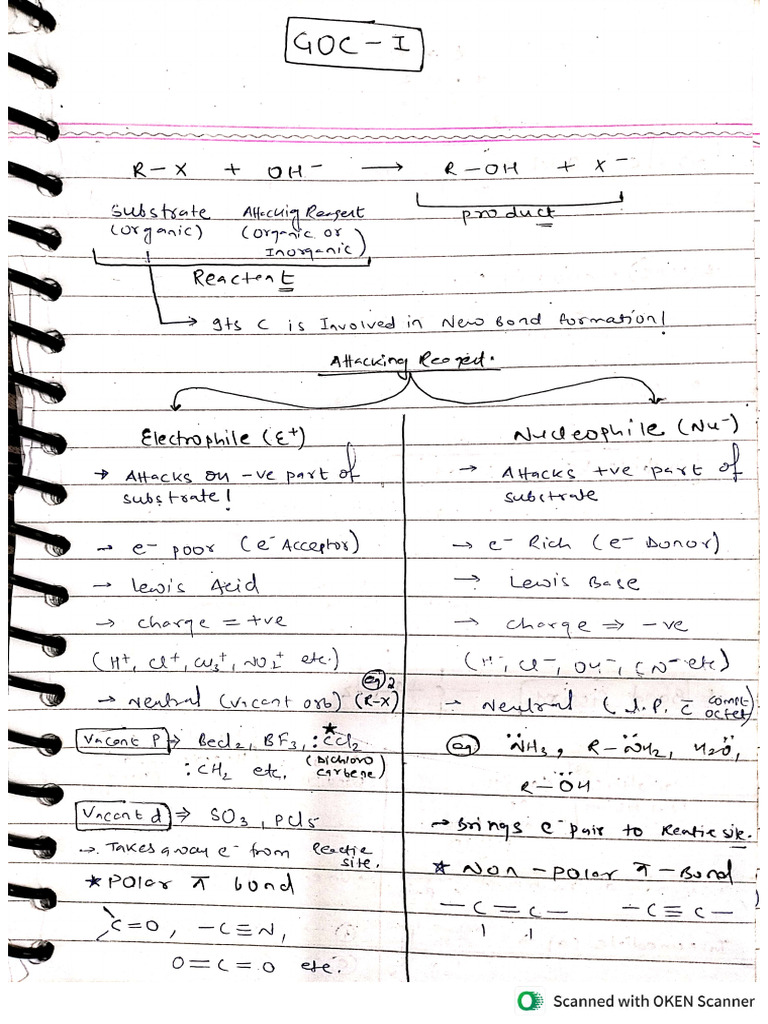 GOC - I
R-X + OH⁻ ⟶ R-OH + X⁻
Substrate Attackig Reagent product
(organic) (organic or
Inorganic)
Reactent
↳ Its C is Involved in New Bond formation!
Attacking Reagent.
Electrophile (E⁺)
→ Attacks on -ve part of
substrate!
→ e⁻ poor (e⁻ Acceptor)
→ Lewis Acid
→ charge = +ve
(H⁺, Cl⁺, CH₃⁺, NO₂⁺ etc.)
→ Neutral (vacant orb) (R-X)
Vacant p ⇒ BeCl₂, BF₃, :CCl₂
:CH₂ etc. (Dichloro
carbene)
Vacant d ⇒ SO₃, PCl₅
→ Takes away e⁻ from Reactie
site.
★ Polar π bond
C=O, -C≡N,
O=C=O etc.
Nucleophile (Nu⁻)
→ Attacks +ve part of
substrate
→ e⁻ Rich (e⁻ Donor)
→ Lewis Base
→ charge ⇒ -ve
(H⁻, Cl⁻, OH⁻, CN⁻ etc)
→ Neutral (l.P. c̄ compl-
octet)
eg N̈H₃, R-N̈H₂, H₂Ö,
R-ÖH
→ Brings e⁻ pair to Reatie site.
★ Non-polar π-Bond
-C=C- -C≡C-
Scanned with OKEN Scanner